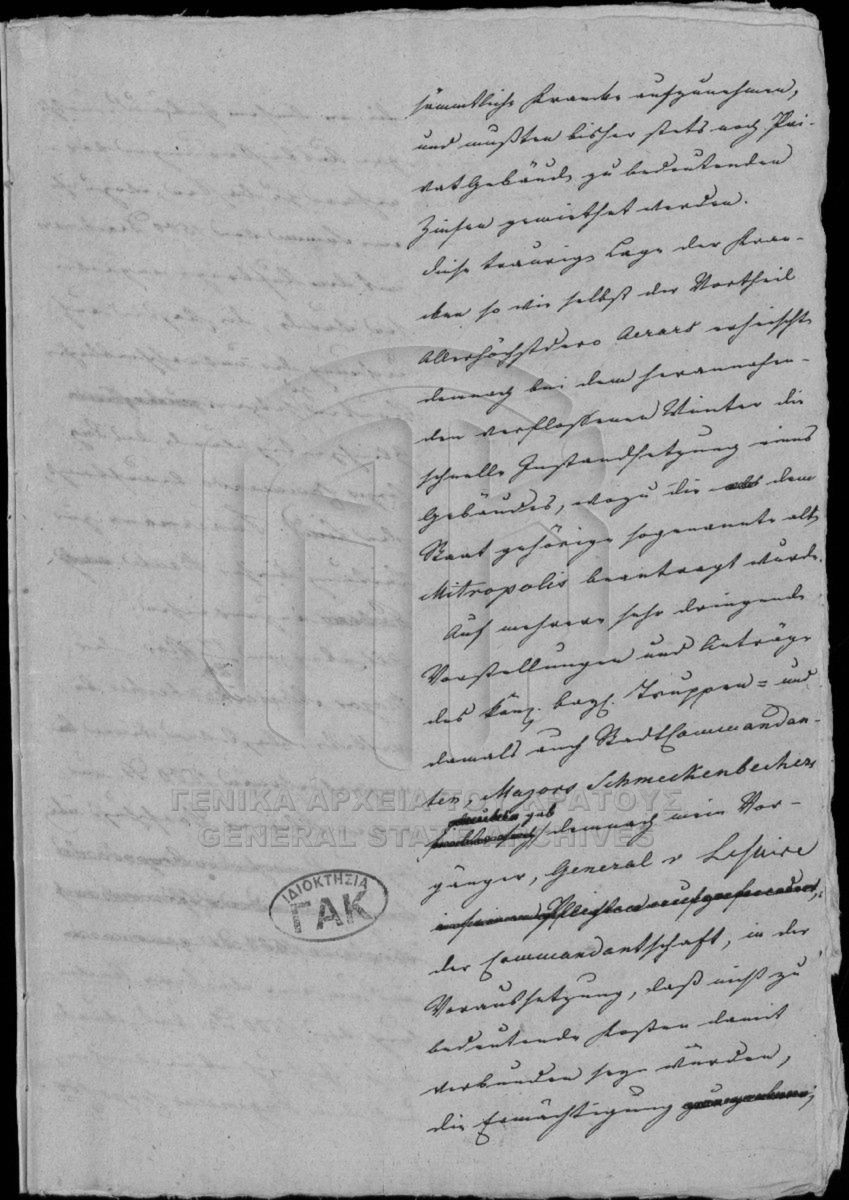 sämmtliche Kranke aufzunehmen,
und mußten bisher stets noch Pri-
vatGebäude zu bedeutenden
Zinsen gemiethet werden.
Diese traurige Lage der Kran-
ken so wie selbst der Vortheil
Allerhöchstdero Aerars erheischte
demnach bei dem herannahen-
den verflossenen Winter die
schnelle Instandsetzung eines
Gebäudes, wozu die dem
Staat gehörige sogenannte alte
Mitropolis beantragt wurde.
Auf mehrere sehr dringende
Vorstellungen und Anträge
des köng. bayr. Truppen= und
damals auch StadtCommandan-
ten, Majors Schmeckenbecher
gab
demnach mein Vor-
gänger, General v Lesuire
der Commandantschaft, in der
Voraussetzung, daß nicht zu
bedeutende Kosten damit
verbunden seyn würden,
die Ermächtigung
ΓΕΝΙΚΑ ΑΡΧΕΙΑ ΤΟΥ ΚΡΑΤΟΥΣ
GENERAL STATE ARCHIVES
ΙΔΙΟΚΤΗΣΙΑ
ΓΑΚ